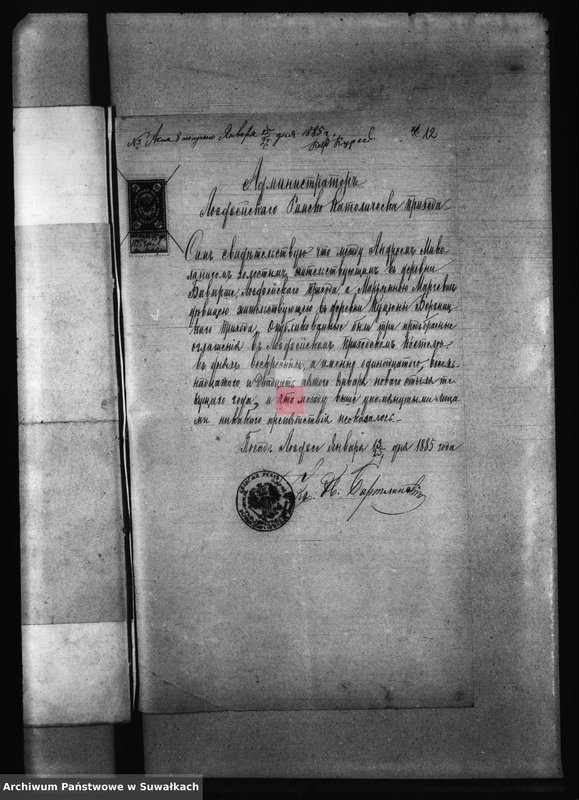 № Акта 8 Января 15/27 дня 1885 г. № 12
Администраторъ
Лоздзейскаго Римско Католическа прихода
Симъ свидѣтельствую что между Андреемъ Мико-
лайтисомъ холостымъ жительствующимъ въ деревни
Лоздзейскаго прихода, а Марьянною Маргевичъ
дѣвицею жительствующею въ деревни
каго прихода, Опубликованные были три предбрачные
оглашенія въ Лоздзейскомъ Приходскомъ Костелѣ
въ дняхъ воскресныхъ, а именно одинадцатаго, восем-
надцатаго и двадцать пятаго Января новаго стыля те-
кущаго года, и что между выше упомянутыми лица-
ми никакого препятствія неоказалось.
Посадъ Лоздзее Январь 13/25 дня 1885 года
Кс.
Archiwum Państwowe w Suwałkach